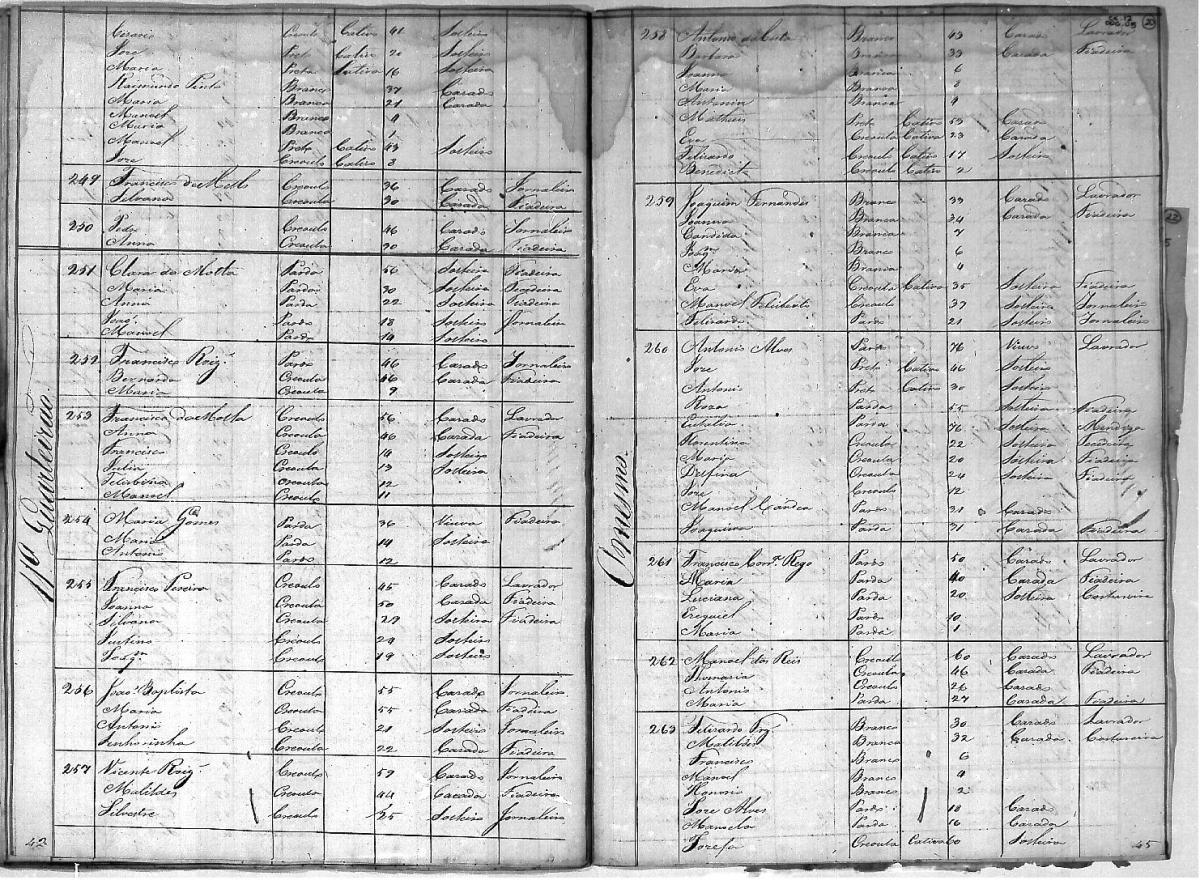 11º Quarteirao.
Crioulo Cativo 41 Solteiro
Jose Preto Cativo 20 Solteiro
Maria Preta Cativa 16 Solteira
Raimundo Pinto Branco 37 Casado
Maria Branca 21 Casada
Manoel Branco 4
Maria Branca 1
Manoel Preto Cativo 43 Solteiro
Jose Creoulo Cativo 3
249 Francisco da Creoulo 36 Casado Jornaleiro
Silvana Creoula 30 Casada Fiadeira
250 Creoulo 46 Casado Jornaleiro
Anna Creoula 30 Casada Fiadeira
251 Clara da Motta Parda 56 Solteira Fiadeira
Maria Parda 30 Solteira Fiadeira
Anna Parda 22 Solteira Fiadeira
Joaõ Pardo 18 Solteiro Jornaleiro
Manoel Pardo 14 Solteiro
252 Francisco Roiz Pardo 46 Casado Jornaleiro
Bernarda Creoula 46 Casada Fiadeira
Maria Creoula 9
253 Francisco da Motta Creoulo 56 Casado Lavrador
Anna Creoula 46 Casada Fiadeira
Francisco Creoulo 14 Solteiro
Julia Creoula 13 Solteira
Creoula 12
Manoel Creoulo 11
254 Maria Gomes Parda 36 Viuva Fiadeira
Maria Parda 14 Solteira
Antonio Pardo 12
255 Francisco Pereira Creoulo 45 Casado Lavrador
Joanna Creoula 50 Casada Fiadeira
Silvana Creoula 29 Solteira Fiadeira
Justino Creoulo 24 Solteiro
Joaqm Creoulo 19 Solteiro
256 Joao Baptista Creoulo 55 Casado Jornaleiro
Maria Creoula 55 Casada Fiadeira
Antonio Creoulo 21 Solteiro Jornaleiro
Senhorinha Creoula 22 Casada Fiadeira
257 Vicente Roiz Creoulo 59 Casado Jornaleiro
Matildes Creoula 44 Casada Fiadeira
Silvestre Creoulo 25 Solteiro Jornaleiro
42
22
Omesmo.
258 Antonio da Costa Branco 43 Casado Lavrador
Barbara Branca 33 Casada Fiadeira
Joanna Branca 6
Maria Branca
Antonia Branca 4
Matheus Preto Cativo 59 Casado
Eva Creoula Cativa 23 Casada
Felizardo Creoulo Cativo 17 Solteiro
Benedicta Creoula Cativa 2
259 Joaquim Fernandes Branco 39 Casado Lavrador
Joanna Branca 34 Casada Fiadeira
Candida Branca 7
Joaqm Branco 6
Maria Branca 4
Eva Creoula Cativa 35 Solteira Fiadeira
Manoel Creoulo 37 Solteiro Jornaleiro
Felizardo Pardo 21 Solteiro Jornaleiro
260 Antonio Alves Pardo 76 Viuvo Lavrador
Jose Preto Cativo 46 Solteiro
Antonio Preto Cativo 30 Solteiro
Roza Parda 55 Solteira Fiadeira
Eulalia Parda 76 Solteira Mendiga
Florentina Creoula 22 Solteira Fiadeira
Maria Creoula 20 Solteira Fiadeira
Delfina Creoula 24 Solteira Fiadeira
Jose Creoulo 12
Manoel Candea Pardo 31 Casado
Joaquina Parda 31 Casada Fiadeira
261 Francisco Corra Rego Pardo 50 Casado Lavrador
Maria Parda 40 Casada Fiadeira
Luciana Parda 20 Solteira Costureira
Ezequiel Pardo 10
Maria Parda 1
262 Manoel dos Reis Creoulo 60 Casado Lavrador
Creoula 46 Casada Fiadeira
Antonio Creoulo 26 Casado
Maria Parda 24 Casada Fiadeira
263 Felizardo Branco 30 Casado Lavrador
Matildes Branca 32 Casada Costureira
Francisco Branco 6
Manoel Branco 4
Honorio Branco 2
Jose Alves Pardo 18 Casado
Manoela Parda 16 Casada
Josefa Creoula Cativa 60 Solteira
45